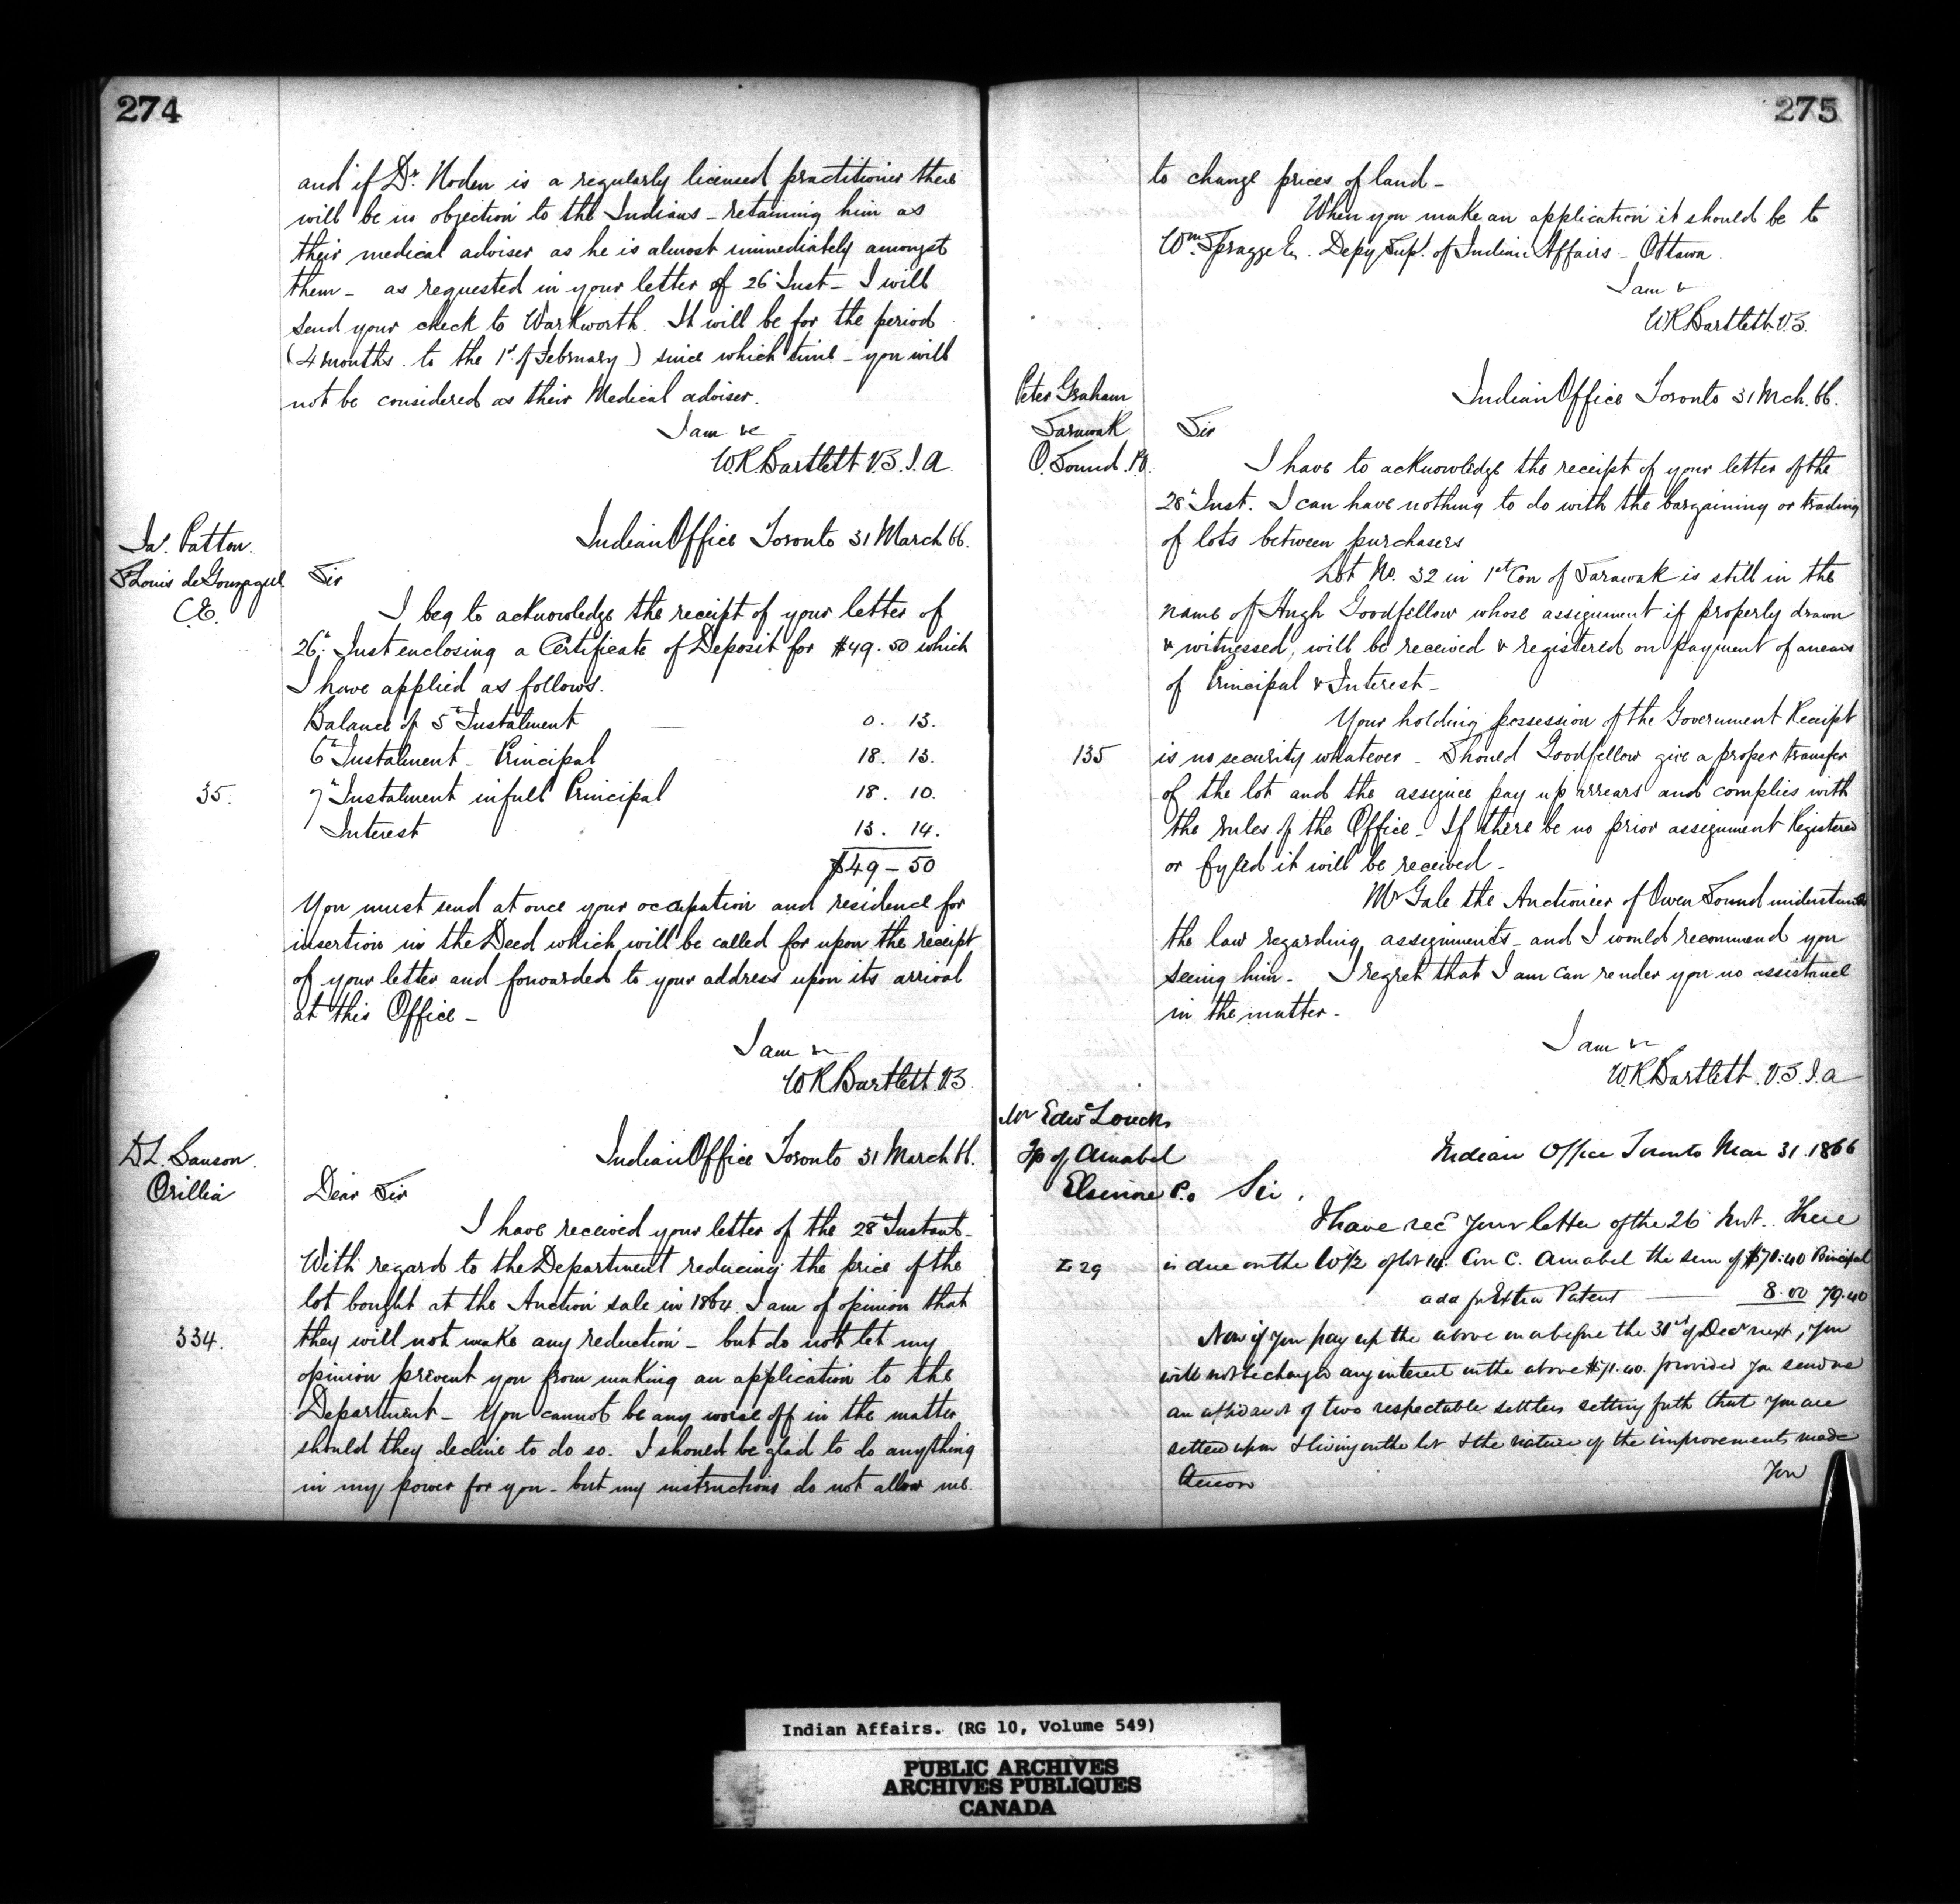 274
and if Dr. Noden is a regularly licensed practitioner there
will be no objection to the Indians - retaining him as
their medical adviser as he is almost immediately amongst
them - as requested in your letter of 26 Inst - I will
send your check to Warkworth. It will be for the period
(4 months. to the 1st of February) since which time - you will
not be considered as their Medical adviser.
I am &c -
W.R. Bartlett V.S.I.A.
Jas. Patton.
St Louis de Gonzague
C.E.
Indian Office Toronto 31 March 66.
Sir
I beg to acknowledge the receipt of your letter of
26th Inst enclosing a Certificate of Deposit for $49.50 which
I have applied as follows.
Balance of 5th Instalment 0. 13.
6th Instalment - Principal 18. 13.
35.
7th Instalment in full Principal 18. 10.
Interest 13. 14.
$49 - 50
You must send at once your occupation and residence for
insertion in the Deed which will be called for upon the receipt
of your letter and forwarded to your address upon its arrival
at this Office -
I am &c
W R Bartlett. V.S.
D.L. Sanson.
Orillia
Indian Office Toronto 31 March 66.
Dear Sir
I have received your letter of the 28th Instant -
With regard to the Department reducing the price of the
lot bought at the Auction sale in 1864. I am of opinion that
334.
they will not make any reduction - but do not let my
opinion prevent you from making an application to the
Department - You cannot be any worse off in the matter
should they decline to do so. I should be glad to do anything
in my power for you - but my instructions do not allow me.
275
to change prices of land -
When you make an application it should be to
Wm. Spragge Es. Depy Supt. of Indian Affairs - Ottawa.
I am &
W.R. Bartlett. V.S.
Peter Graham
Sarawak
O. Sound. P.O.
Indian Office Toronto 31 Mch. 66.
Sir
I have to acknowledge the receipt of your letter of the
28th Inst. I can have nothing to do with the bargaining or trading
of lots between purchasers
Lot No. 32 in 1st Con of Sarawak is still in the
name of Hugh Goodfellow whose assignment if properly drawn
& witnessed, will be received & registered on payment of arrears
of Principal & Interest -
Your holding possession of the Government Receipt
135
is no security whatever - Should Goodfellow give a proper transfer
of the lot and the assignee pay up arrears and complies with
the rules of the Office - If there be no prior assignment Registered
or fyled it will be received -
Mr Gale the Auctioneer of Owen Sound understands
the law regarding assignments - and I would recommend you
seeing him - I regret that I am can render you no assistance
in the matter -
I am &c
W.R. Bartlett. V.S.I.A
Mr Edwd Loucks
Tp of Amabel
Elsinore P.O
Indian Office Toronto Mar 31. 1866
Sir,
I have recd your letter of the 26 Inst. There
L 29
is due on the W 1/2 of lot 14. Con C. Amabel the sum of $71.40 Principal
add for Extra Patent 8.00 79.40
Now if you pay up the above on or before the 31st of Decr next, you
will not be charged any interest on the above $71.40. provided you send me
an affidavit of two respectable settlers setting forth that you are
settled upon & living on the lot & the nature of the improvements made
you
Indian Affairs. (RG 10, Volume 549)
PUBLIC ARCHIVES
ARCHIVES PUBLIQUES
CANADA